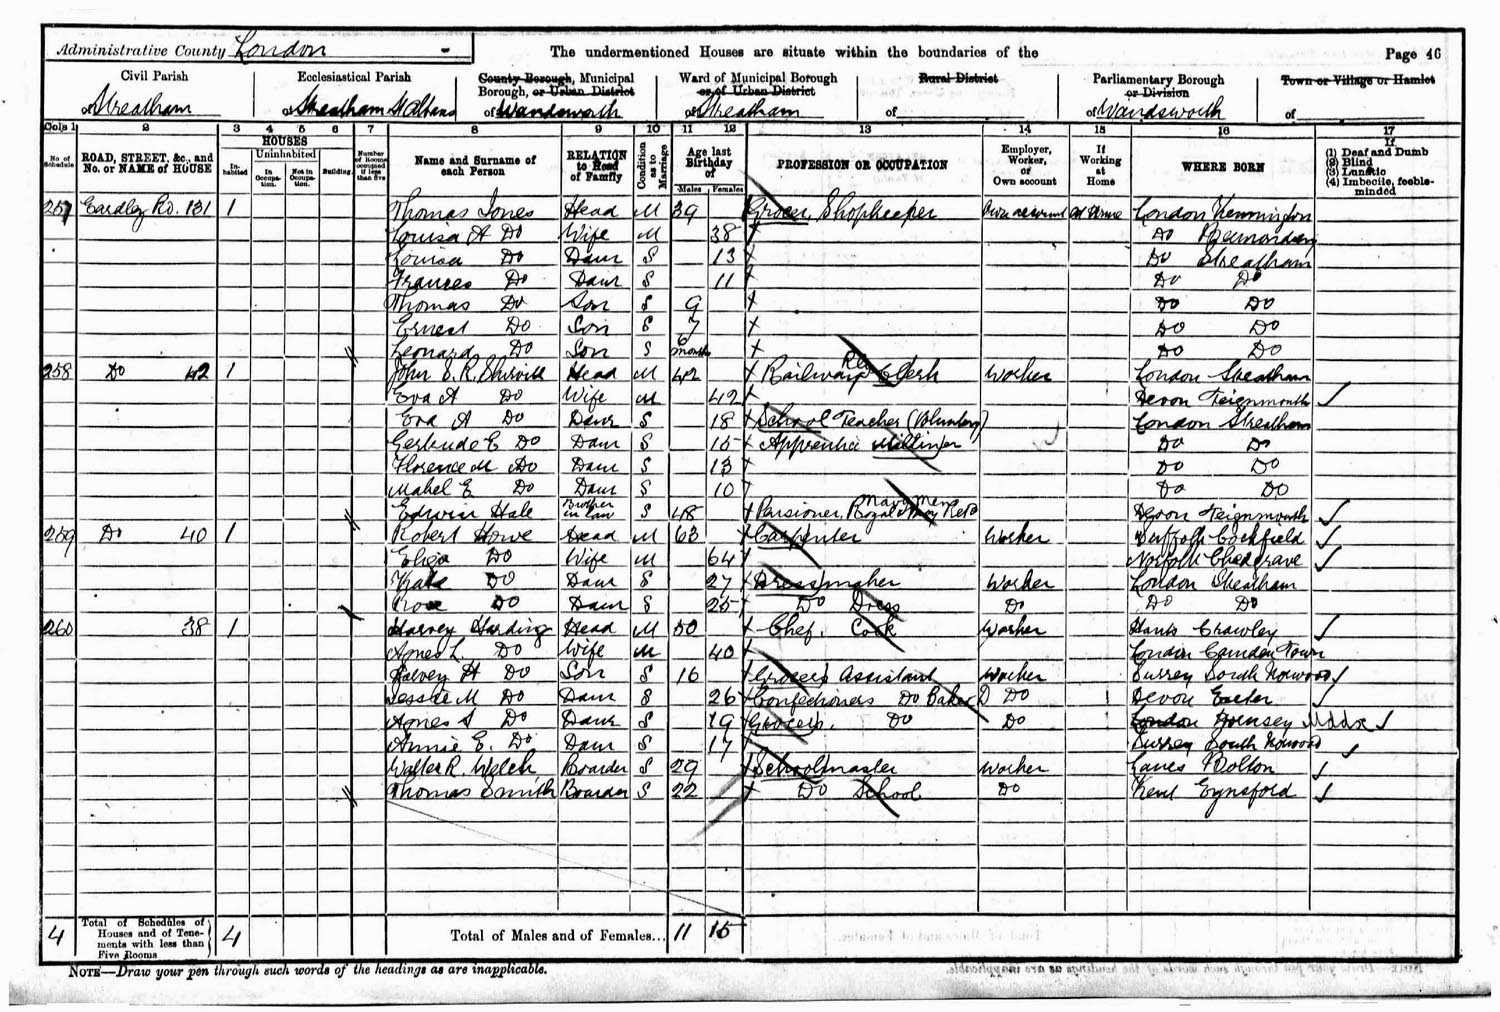 Administrative County London -
The undermentioned Houses are situate within the boundaries of the
Page 46
Civil Parish
of Streatham
Ecclesiastical Parish
of Streatham St Albans
County Borough, Municipal
Borough, or Urban District
of Wandsworth
Ward of Municipal Borough
or of Urban District
of Streatham
Rural District
of
Parliamentary Borough
or Division
of Wandsworth
Town or Village or Hamlet
of
Cols 1 2 3 4 5 6 7 8 9 10 11 12 13 14 15 16 17
No. of Schedule
ROAD, STREET, &c., and No. or NAME of HOUSE
HOUSES
In-habited
Uninhabited
In Occupa-tion.
Not in Occupa-tion.
Building.
Number of Rooms occupied if less than five
Name and Surname of each Person
RELATION to Head of Family
Condition as to Marriage
Age last Birthday of
Males Females
PROFESSION OR OCCUPATION
Employer, Worker, or Own account
If Working at Home
WHERE BORN
If
(1) Deaf and Dumb
(2) Blind
(3) Lunatic
(4) Imbecile, feeble-minded
257 Eardley Rd. 131 1 Thomas Jones Head M 39 Grocer, Shopkeeper Own account At Home London Kennington
Louisa A Do Wife M 38 Do Bermondsey
Louisa Do Daur S 13 Do Streatham
Frances Do Daur S 11 Do Do
Thomas Do Son S 9 Do Do
Ernest Do Son S 7 Do Do
Leonard Do Son S 6 months Do Do
258 Do 42 1 John S. R. Head M 42 Railway Clerk Worker London Streatham
Eva A Do Wife M 42 Devon Teignmouth
Eva A Do Daur S 18 School Teacher (Voluntary) London Streatham
Gertrude E Do Daur S 15 Apprentice Milliner Do Do
Florence M Do Daur S 13 Do Do
Mabel E Do Daur S 10 Do Do
Edwin Hale Brother in law S 48 Pensioner, Royal Navy Navy Mens Devon Teignmouth
259 Do 40 1 Robert Howe Head M 63 Carpenter Worker Suffolk Cockfield
Eliza Do Wife M 64 Norfolk Chedgrave
Kate Do Daur S 27 Dressmaker Worker London Streatham
Rose Do Daur S 25 Do Dress Do Do Do
260 38 1 Harvey Harding Head M 50 Chef. Cook Worker Hants Crawley
Agnes L. Do Wife M 40 London Camden Town
Harvey H Do Son S 16 Grocers Assistant Worker Surrey South Norwood
Jessie M Do Daur S 26 Confectioners Do Baker D Do Devon Exeter
Agnes S Do Daur S 19 Grocers. Do Do London Hornsey Mddx
Annie E. Do Daur S 17 Surrey South Norwood
Walter R. Welch Boarder S 29 Schoolmaster Worker Lancs Bolton
Thomas Smith Boarder S 22 Do School Do Kent Eynsford
4 Total of Schedules of Houses and of Tene-ments with less than Five Rooms 4 Total of Males and of Females... 11 15
NOTE—Draw your pen through such words of the headings as are inapplicable.